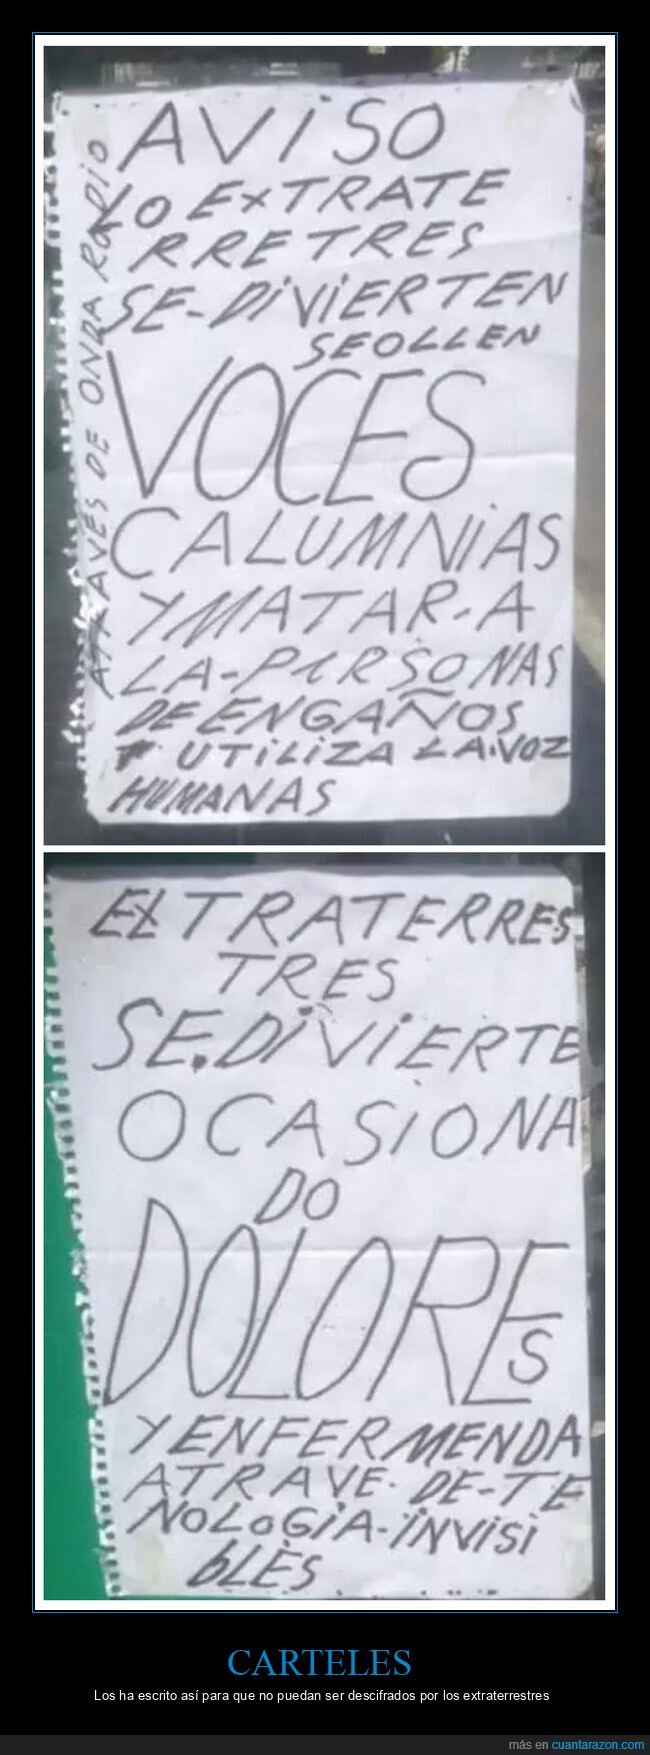 AViSO
LO EXTRATE
RRETRES
SE-DiViERTEN
SEOLLEN
VOCES
CALUMNiAS
Y MATAR-A
LA-PERSONAS
DE ENGAÑOS
UTiLiZA LA.VOZ
HUMANAS
ATRAVES DE ONDA RADiO
EXTRATERRES
TRES
SE.DiViERTE
OCASiONA
DO
DOLORES
Y ENFERMENDA
ATRAVE. DE-TE
NOLOGiA-iNViSi
bLES
CARTELES
Los ha escrito así para que no puedan ser descifrados por los extraterrestres
más en cuantarazon.com